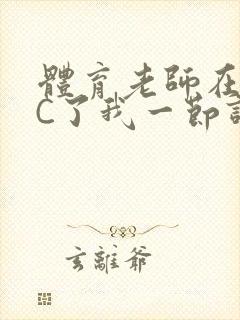 體育老師在
C了我一節
玄離爺